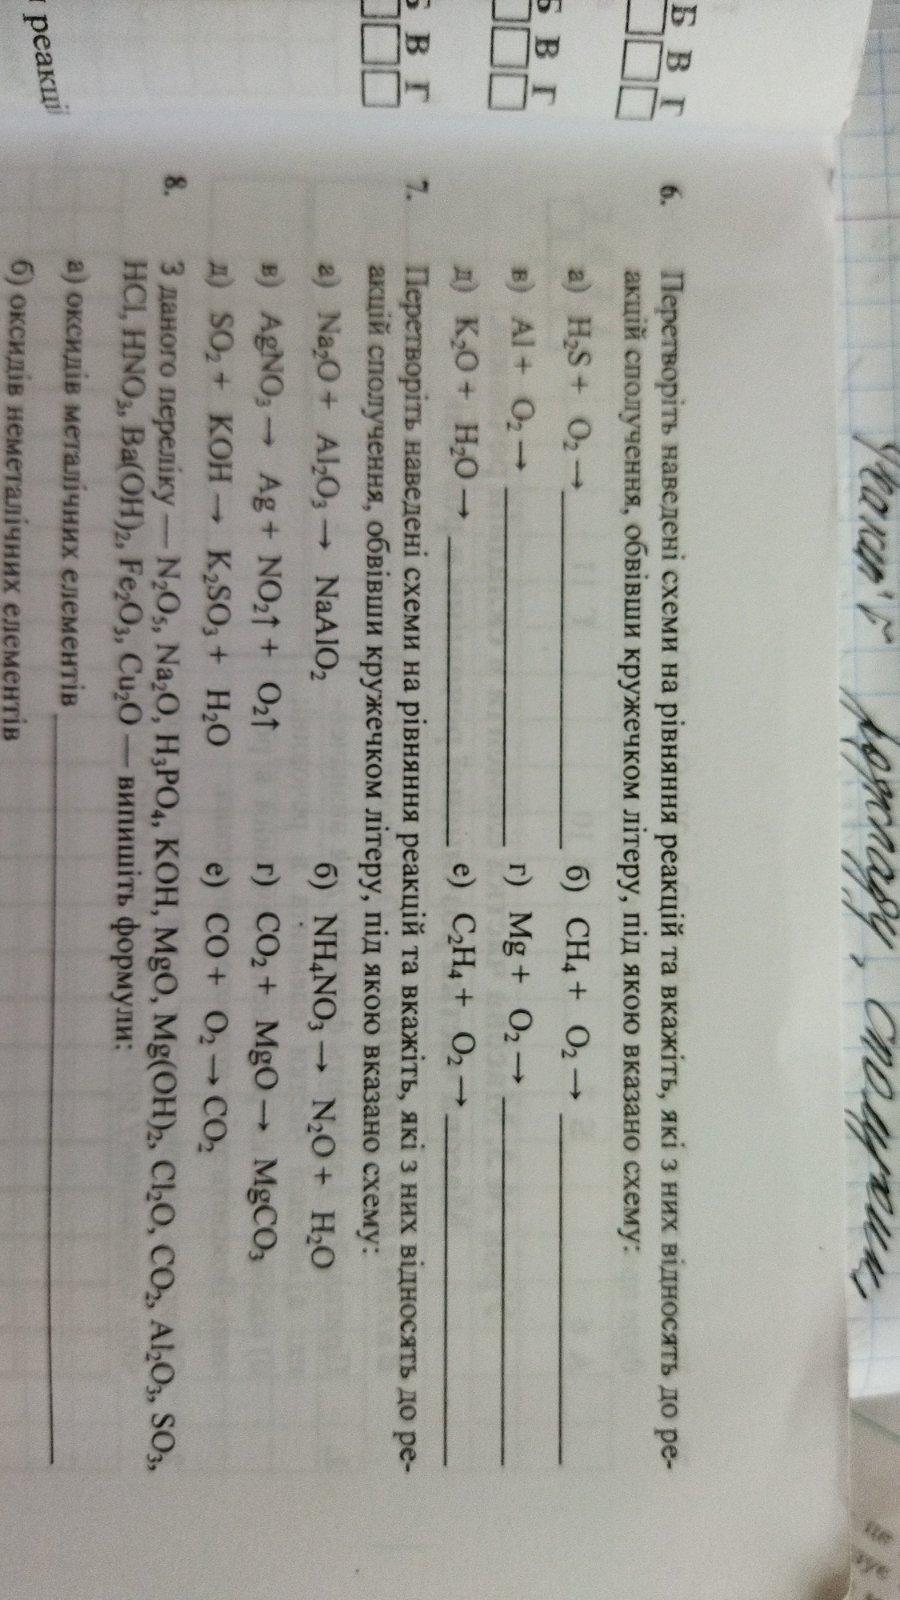 Б В Г
Б В Г
Б В Г
реакції
6. Перетворіть наведені схеми на рівняння реакцій та вкажіть, які з них відносять до ре-
акцій сполучення, обвівши кружечком літеру, під якою вказано схему:
а) H₂S + O₂ → б) CH₄ + O₂ →
в) Al + O₂ → г) Mg + O₂ →
д) K₂O + H₂O → е) C₂H₄ + O₂ →
7. Перетворіть наведені схеми на рівняння реакцій та вкажіть, які з них відносять до ре-
акцій сполучення, обвівши кружечком літеру, під якою вказано схему:
а) Na₂O + Al₂O₃ → NaAlO₂ б) NH₄NO₃ → N₂O + H₂O
в) AgNO₃ → Ag + NO₂↑ + O₂↑ г) CO₂ + MgO → MgCO₃
д) SO₂ + KOH → K₂SO₃ + H₂O е) CO + O₂ → CO₂
8. З даного переліку — N₂O₅, Na₂O, H₃PO₄, KOH, MgO, Mg(OH)₂, Cl₂O, CO₂, Al₂O₃, SO₃,
HCl, HNO₃, Ba(OH)₂, Fe₂O₃, Cu₂O — випишіть формули:
а) оксидів металічних елементів
б) оксидів неметалічних елементів